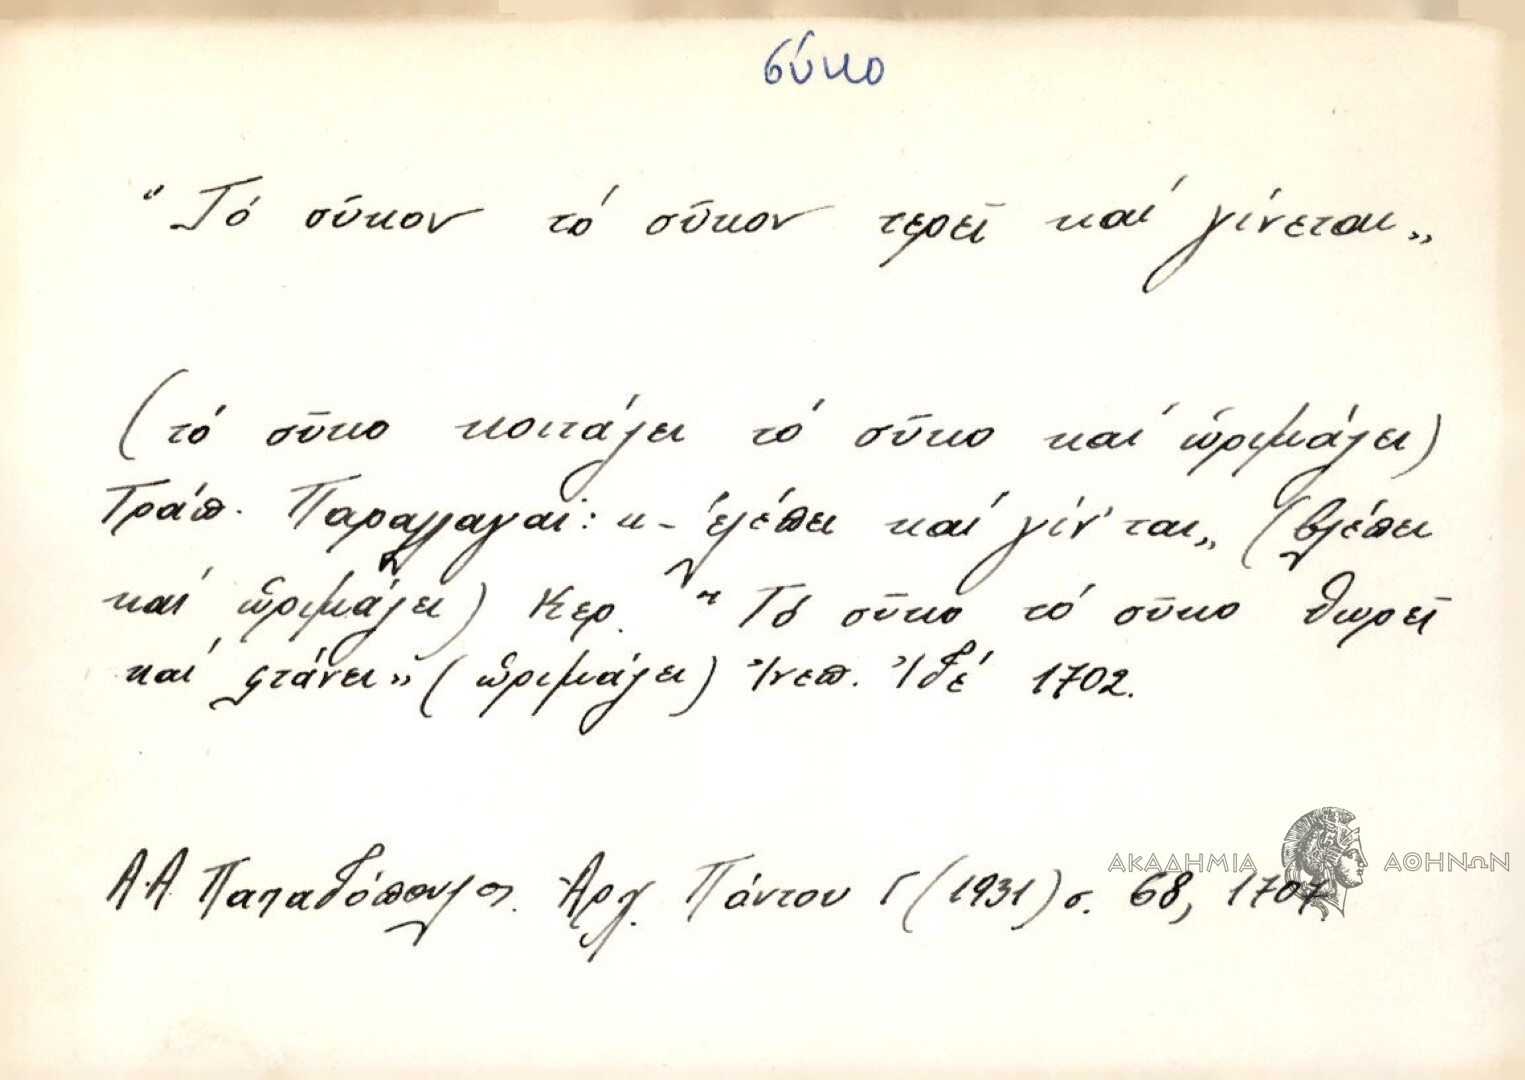 σύκο
"Τό σῦκον τό σῦκον τερεῖ καί γίνεται„
(τό σῦκο κοιτάζει τό σῦκο καί ὡριμάζει)
Τράπ. Παραλλαγαί: κ- 'ελέπει καί γίν'ται„ (βλέπει
καί ὡριμάζει) Κερ. "Τό σῦκο τό σῦκο θωρεῖ
καί φτάνει„ (ὡριμάζει) Ἰνεπ. Ἰδέ 1702.
Α.Α Παπαδόπουλος. Ἀρχ. Πόντου Γ (1931) σ. 68, 1707
ΑΚΑΔΗΜΙΑ ΑΘΗΝΩΝ